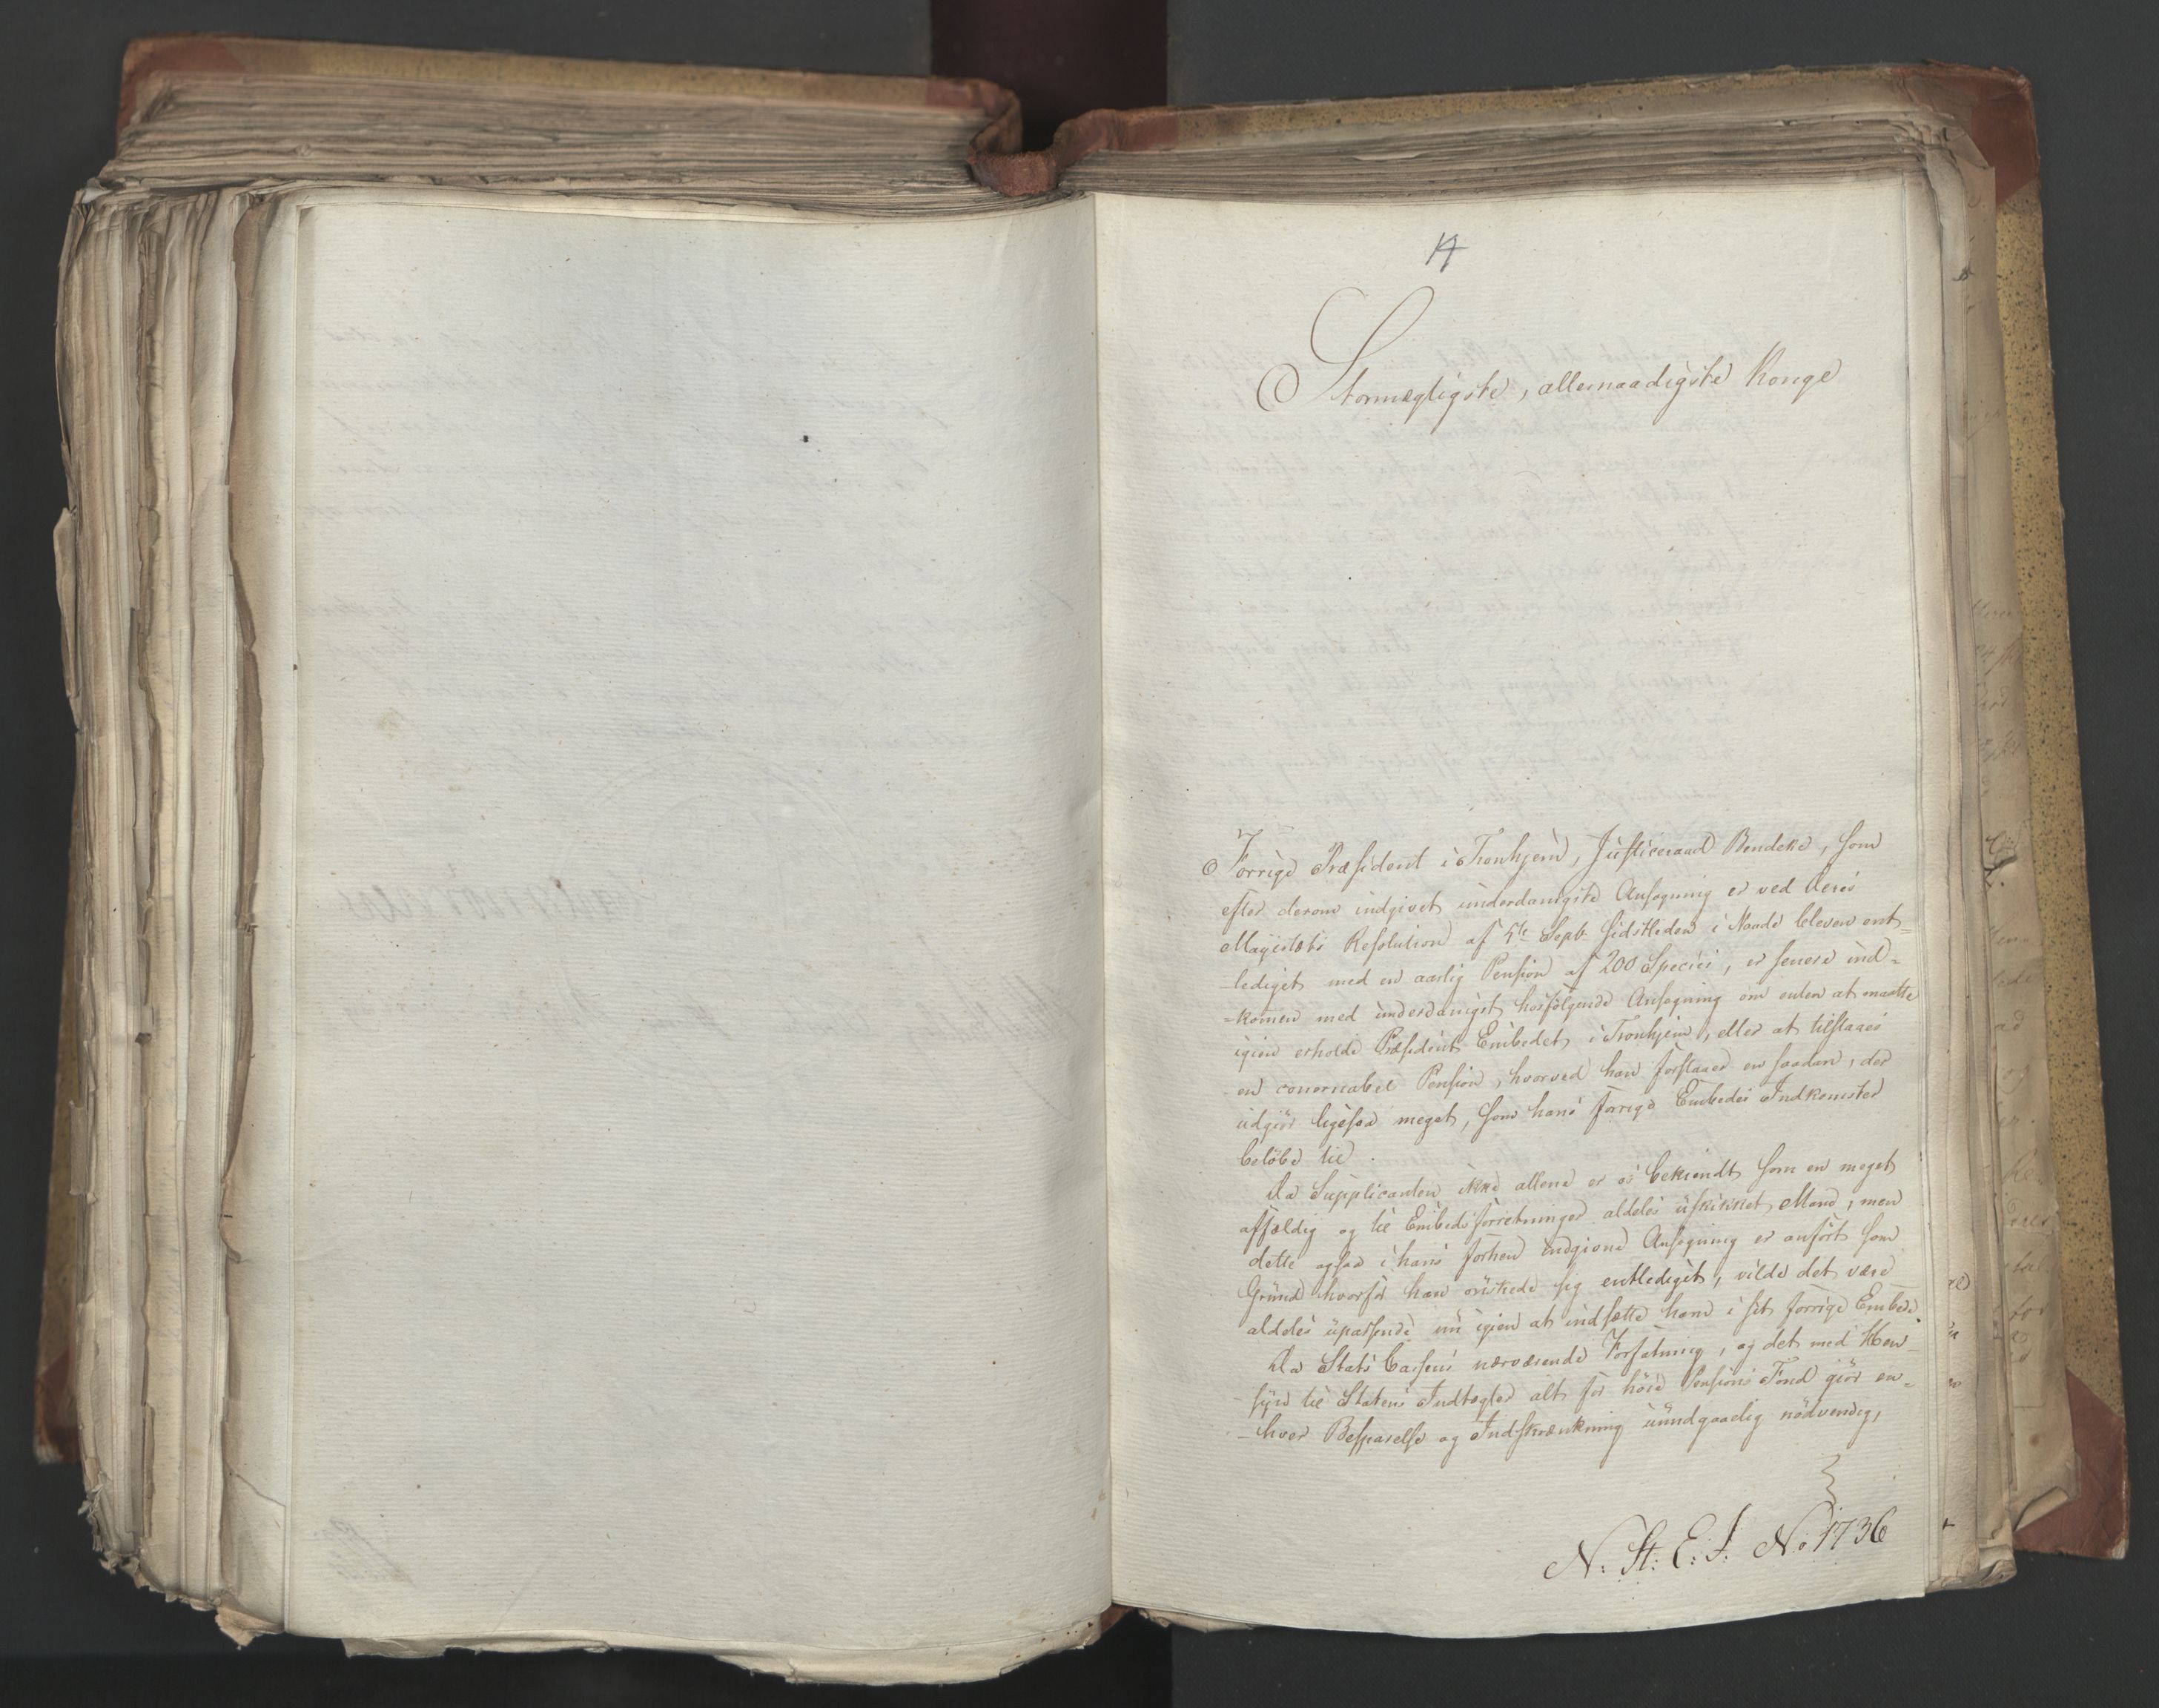 14
Stormægtigste, allernaadigste Konge
Forrige Præsident i Tronhjem, Justiceraad Bendeke, som
efter derom indgivet underdanigste Ansøgning er ved Deres
Majestæts Resolution af 5te Sept. sidstleden i Naade bleven ent-
lediget med en aarlig Pension af 200 Species, er senere ind-
-kommen med underdanigst hosfølgende Ansøgning om enten at maatte
igien erholde Præsident Embedet i Tronhjem, eller at tilstaaes
en convenabel Pension, hvorved han forstaaer en saadan, der
udgiør ligesaa meget, som hans forrige Embedes Indkomster
beløbe til.
Da Supplicanten ikke allene er os bekiendt som en meget
affældig og til Embedsforretninger aldeles uskikket Mand, men
dette ogsaa i hans forhen indgivne Ansøgning er anført som
Grund hvorfor han ønskede sig entlediget, vilde det være
aldeles upassende nu igien at indsætte ham i sit forrige Embede.
Da Stats Cassens nærværende Forfatning, og det med Hen-
-syn til Statens Indtægter alt for høie Pensions Fond giør en-
-hver Besparelse og Indskrænkning uundgaaelig nødvendig,
N: St: E: J. No 1736